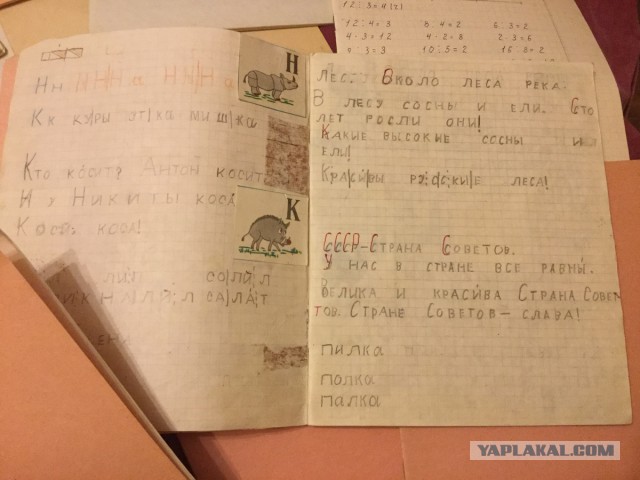 12 : 4 = 3
4 · 3 = 12
8 : 4 = 2
4 · 2 = 8
10 : 5 = 2
6 : 3 = 2
2 · 3 = 6
16 : 8 = 2
Н н Н Н Н а Н Н Н а
К к ку|ры ут|ка ми|ш|ка
Кто косит? Антон косит.
И у Никиты коса
Коси, коса!
са|ла|т
Н
К
Лес. Вколо леса река.
В лесу сосны и ели. Сто
лет росли они!
Какие высокие сосны и
ели!
Кра|си|вы ру|с|с|ки|е леса!
СССР-Страна Советов.
У нас в стране все равны.
Велика и красива Страна Сове-
тов. Стране Советов - слава!
пилка
полка
палка
YAPLAKAL.COM